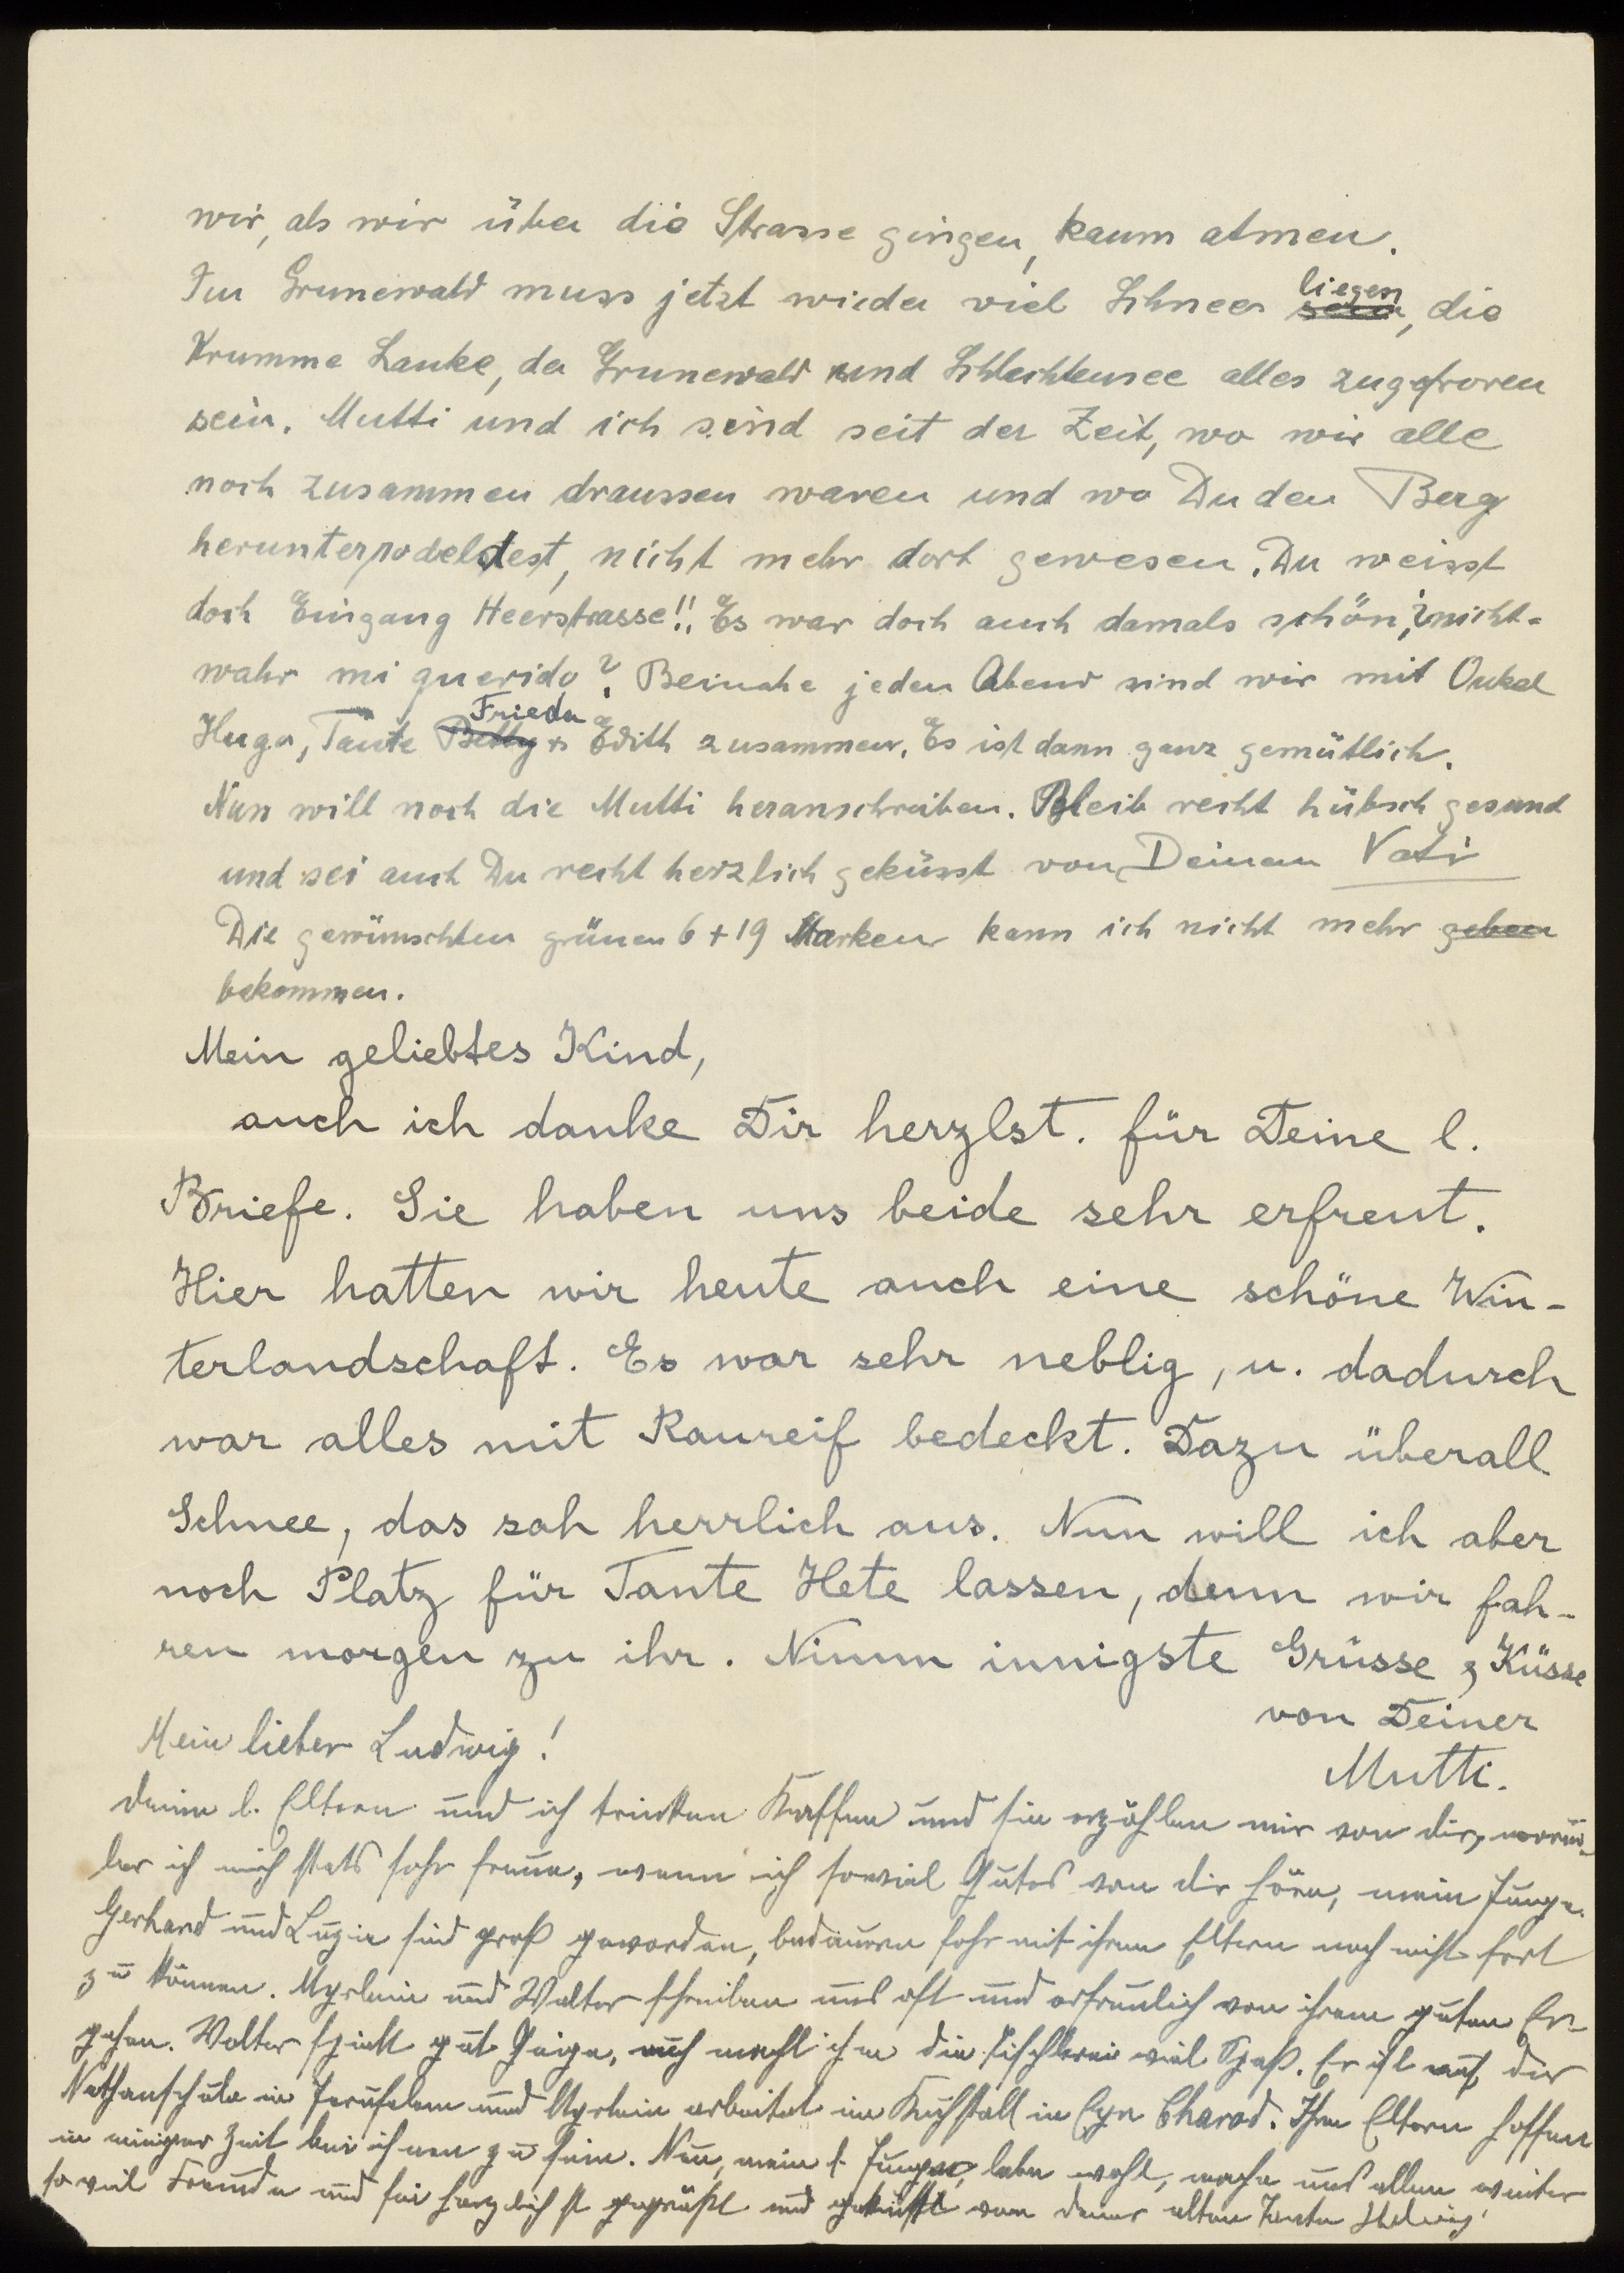 wir, als wir über die Strasse gingen, kaum atmen.
Im Grunewald muss jetzt wieder viel Schnee liegen, die
Krumme Lanke, der Grunewald und Schlachtensee alles zugefroren
sein. Mutti und ich sind seit der Zeit, wo wir alle
noch zusammen draussen waren und wo Du den Berg
herunterrodeldest, nicht mehr dort gewesen. Du weisst
doch Eingang Heerstrasse!! Es war doch auch damals schön, nicht-
wahr mi querido? Beinahe jeden Abend sind wir mit Onkel
Hugo, Tante Betty Frieda + Edith zusammen. Es ist dann ganz gemütlich.
Nun will noch die Mutti heranschreiben. Bleib recht hübsch gesund
und sei auch Du recht herzlich geküsst von Deinem Vati
Die gewünschten grünen 6 + 19 Marken kann ich nicht mehr geben
bekommen.
Mein geliebtes Kind,
auch ich danke Dir herzlst. für Deine l.
Briefe. Sie haben uns beide sehr erfreut.
Hier hatten wir heute auch eine schöne Win-
terlandschaft. Es war sehr neblig, u. dadurch
war alles mit Raureif bedeckt. Dazu überall
Schnee, das sah herrlich aus. Nun will ich aber
noch Platz für Tante Hete lassen, denn wir fah-
ren morgen zu ihr. Nimm innigste Grüsse & Küsse
von Deiner
Mutti.
Mein lieber Ludwig!
deine l. Eltern und ich trinken Kaffee und sie erzählen mir von dir, worü-
ber ich mich stets sehr freue, wenn ich soviel Gutes von dir höre, mein Junge.
Gerhard und Luzie sind groß geworden, bedauern sehr mit ihren Eltern noch nicht fort
zu können. und Walter schreiben uns oft und erfreulich von ihrem guten Er-
gehen. Walter spielt gut Geige, auch macht ihm die Tischlerei viel Spaß. Er ist auf der
Nathanschule in Jerusalem und arbeitet im Kuhstall in Eyn Charod. Ihre Eltern hoffen
in einiger Zeit bei ihnen zu sein. Nun, mein l. Junge, lebe wohl, mache uns allen weiter
so viel Freude und sei herzlichst gegrüßt und geküsst von deiner alten Tante Hedwig.